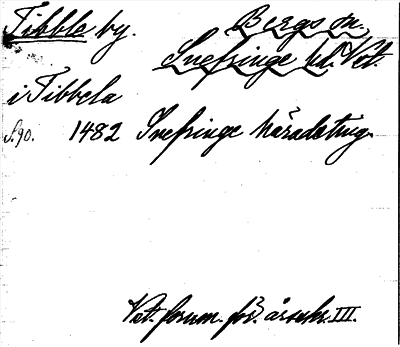 Tibble by. Bergs sn.
Snefringe hd Vstl.
i Tibbela
S. 90. 1482 Snefringe häradsting.
Vstl. fornm. för. årsskr. III.